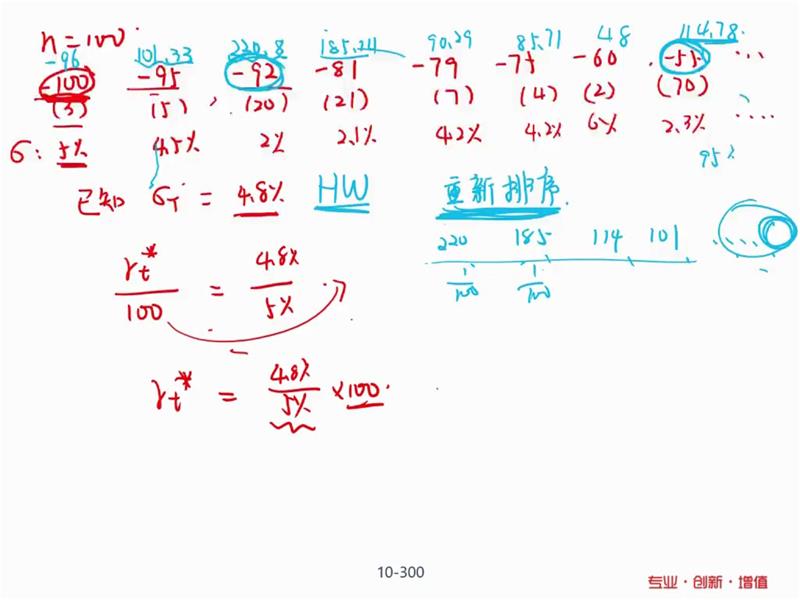 n = 100
-96 101.33 220.8 185.24 90.29 85.71 48 114.78
-100 -95 -92 -81 -79 -75 -60 -55 ...
(3) (5), (20) (21) (7) (4) (2) (70)
σ: 5% 4.5% 2% 2.1% 4.2% 4.2% 6% 2.3% ....
95%
已知 σT = 4.8% HW 重新排序.
220 185 114 101 ....
1/100 1/100
rt*/100 = 4.8%/5%
rt* = 4.8%/5% × 100.
10-300
专业·创新·增值